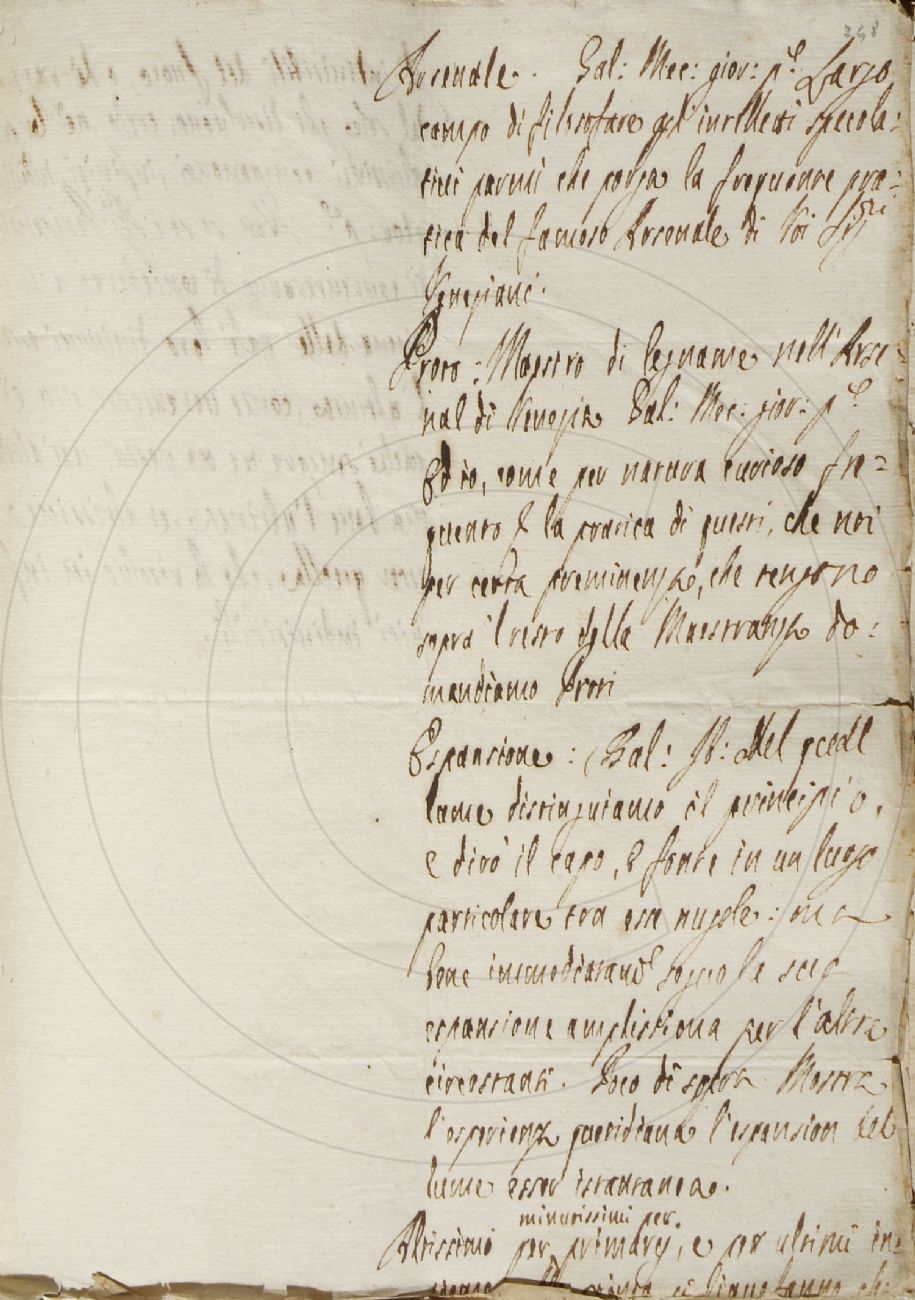 248
Arsenale. Gal: Mec: gior: p.º Largo
campo di filosofare agl'intelletti specola=
tivi parmi che porga la frequente pra=
tica del famoso Arsenale di Voi Sig.ri
Veneziani.
Proto: Maestro di legname nell'Arse
nal di Venezia Gal: Mec: gior: p.º
Ed io, come per natura curioso fre=
quento la pratica di questi, che noi
per certa preminenza, che tengono
sopra 'l resto della Maestranza do=
mandiamo Proti
Espansione: Gal: Del
lume distinguiamo il principio,
e dirò il capo, e fonte in un luogo
particolare tra esse nugole: ma
bene immediatam.e segue la sua
espansione amplissima per l'altre
circostanti. Poco di sopra Mostra
l'esperienza quotidiana l'espansion del
lume esser istantanea.
minutissimi per.
Altissimi per primarj, e per ultimi in=